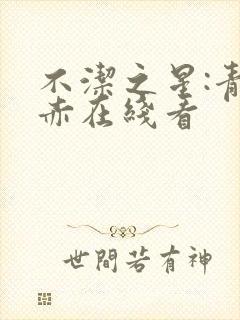 不潔之星:青
赤在綫看
世間若有神